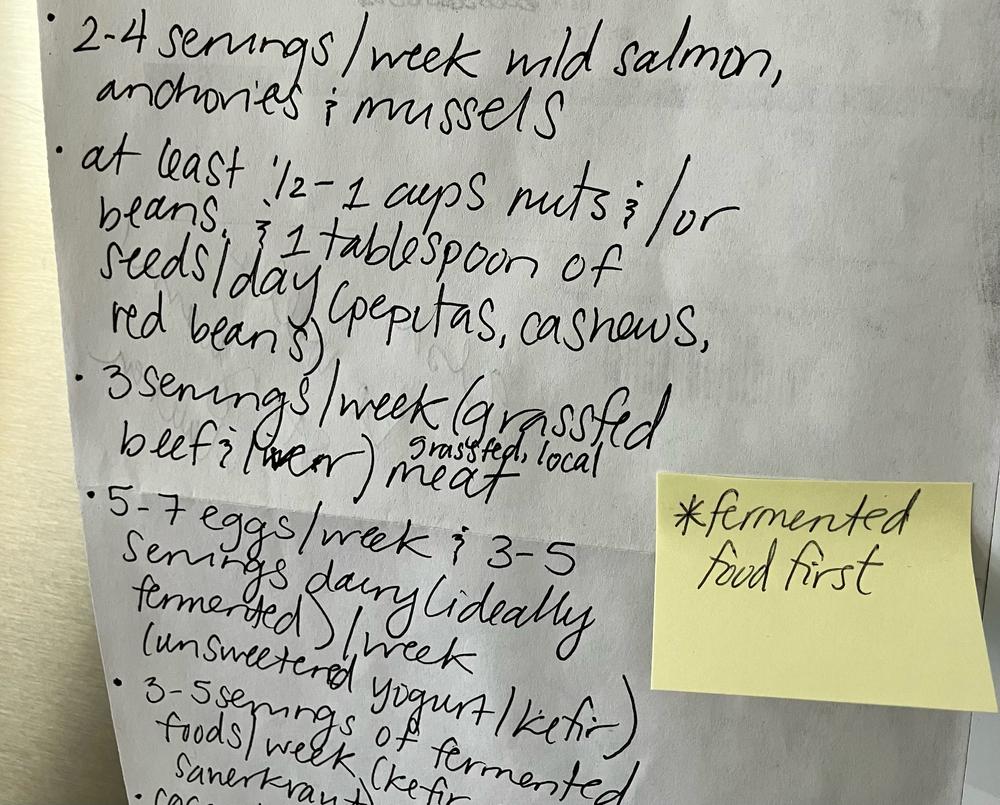 • 2-4 servings/week wild salmon,
anchovies & mussels
• at least 1/2-1 cups nuts &/or
beans, & 1 tablespoon of
seeds/day (pepitas, cashews,
red beans)
• 3 servings/week (grassfed
beef & liver) grassfed, local
meat
• 5-7 eggs/week & 3-5
servings dairy (ideally
fermented)/week
(unsweetened yogurt/kefir)
• 3-5 servings of fermented
foods/week (kefir
sauerkraut)
*fermented
food first